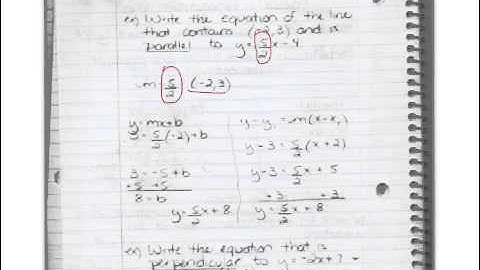 ex) Write the equation of the line
that contains (-2,3) and is
parallel to y=5/2x-4
m 5/2 (-2,3)
y=mx+b
y=5/2(-2)+b
3=-5+b
+5 +5
8=b
y=5/2x+8
y-y₁=m(x-x₁)
y-3=5/2(x+2)
y-3=5/2x+5
+3 +3
y=5/2x+8
ex) Write the equation that is
perpendicular to y=-2x+7